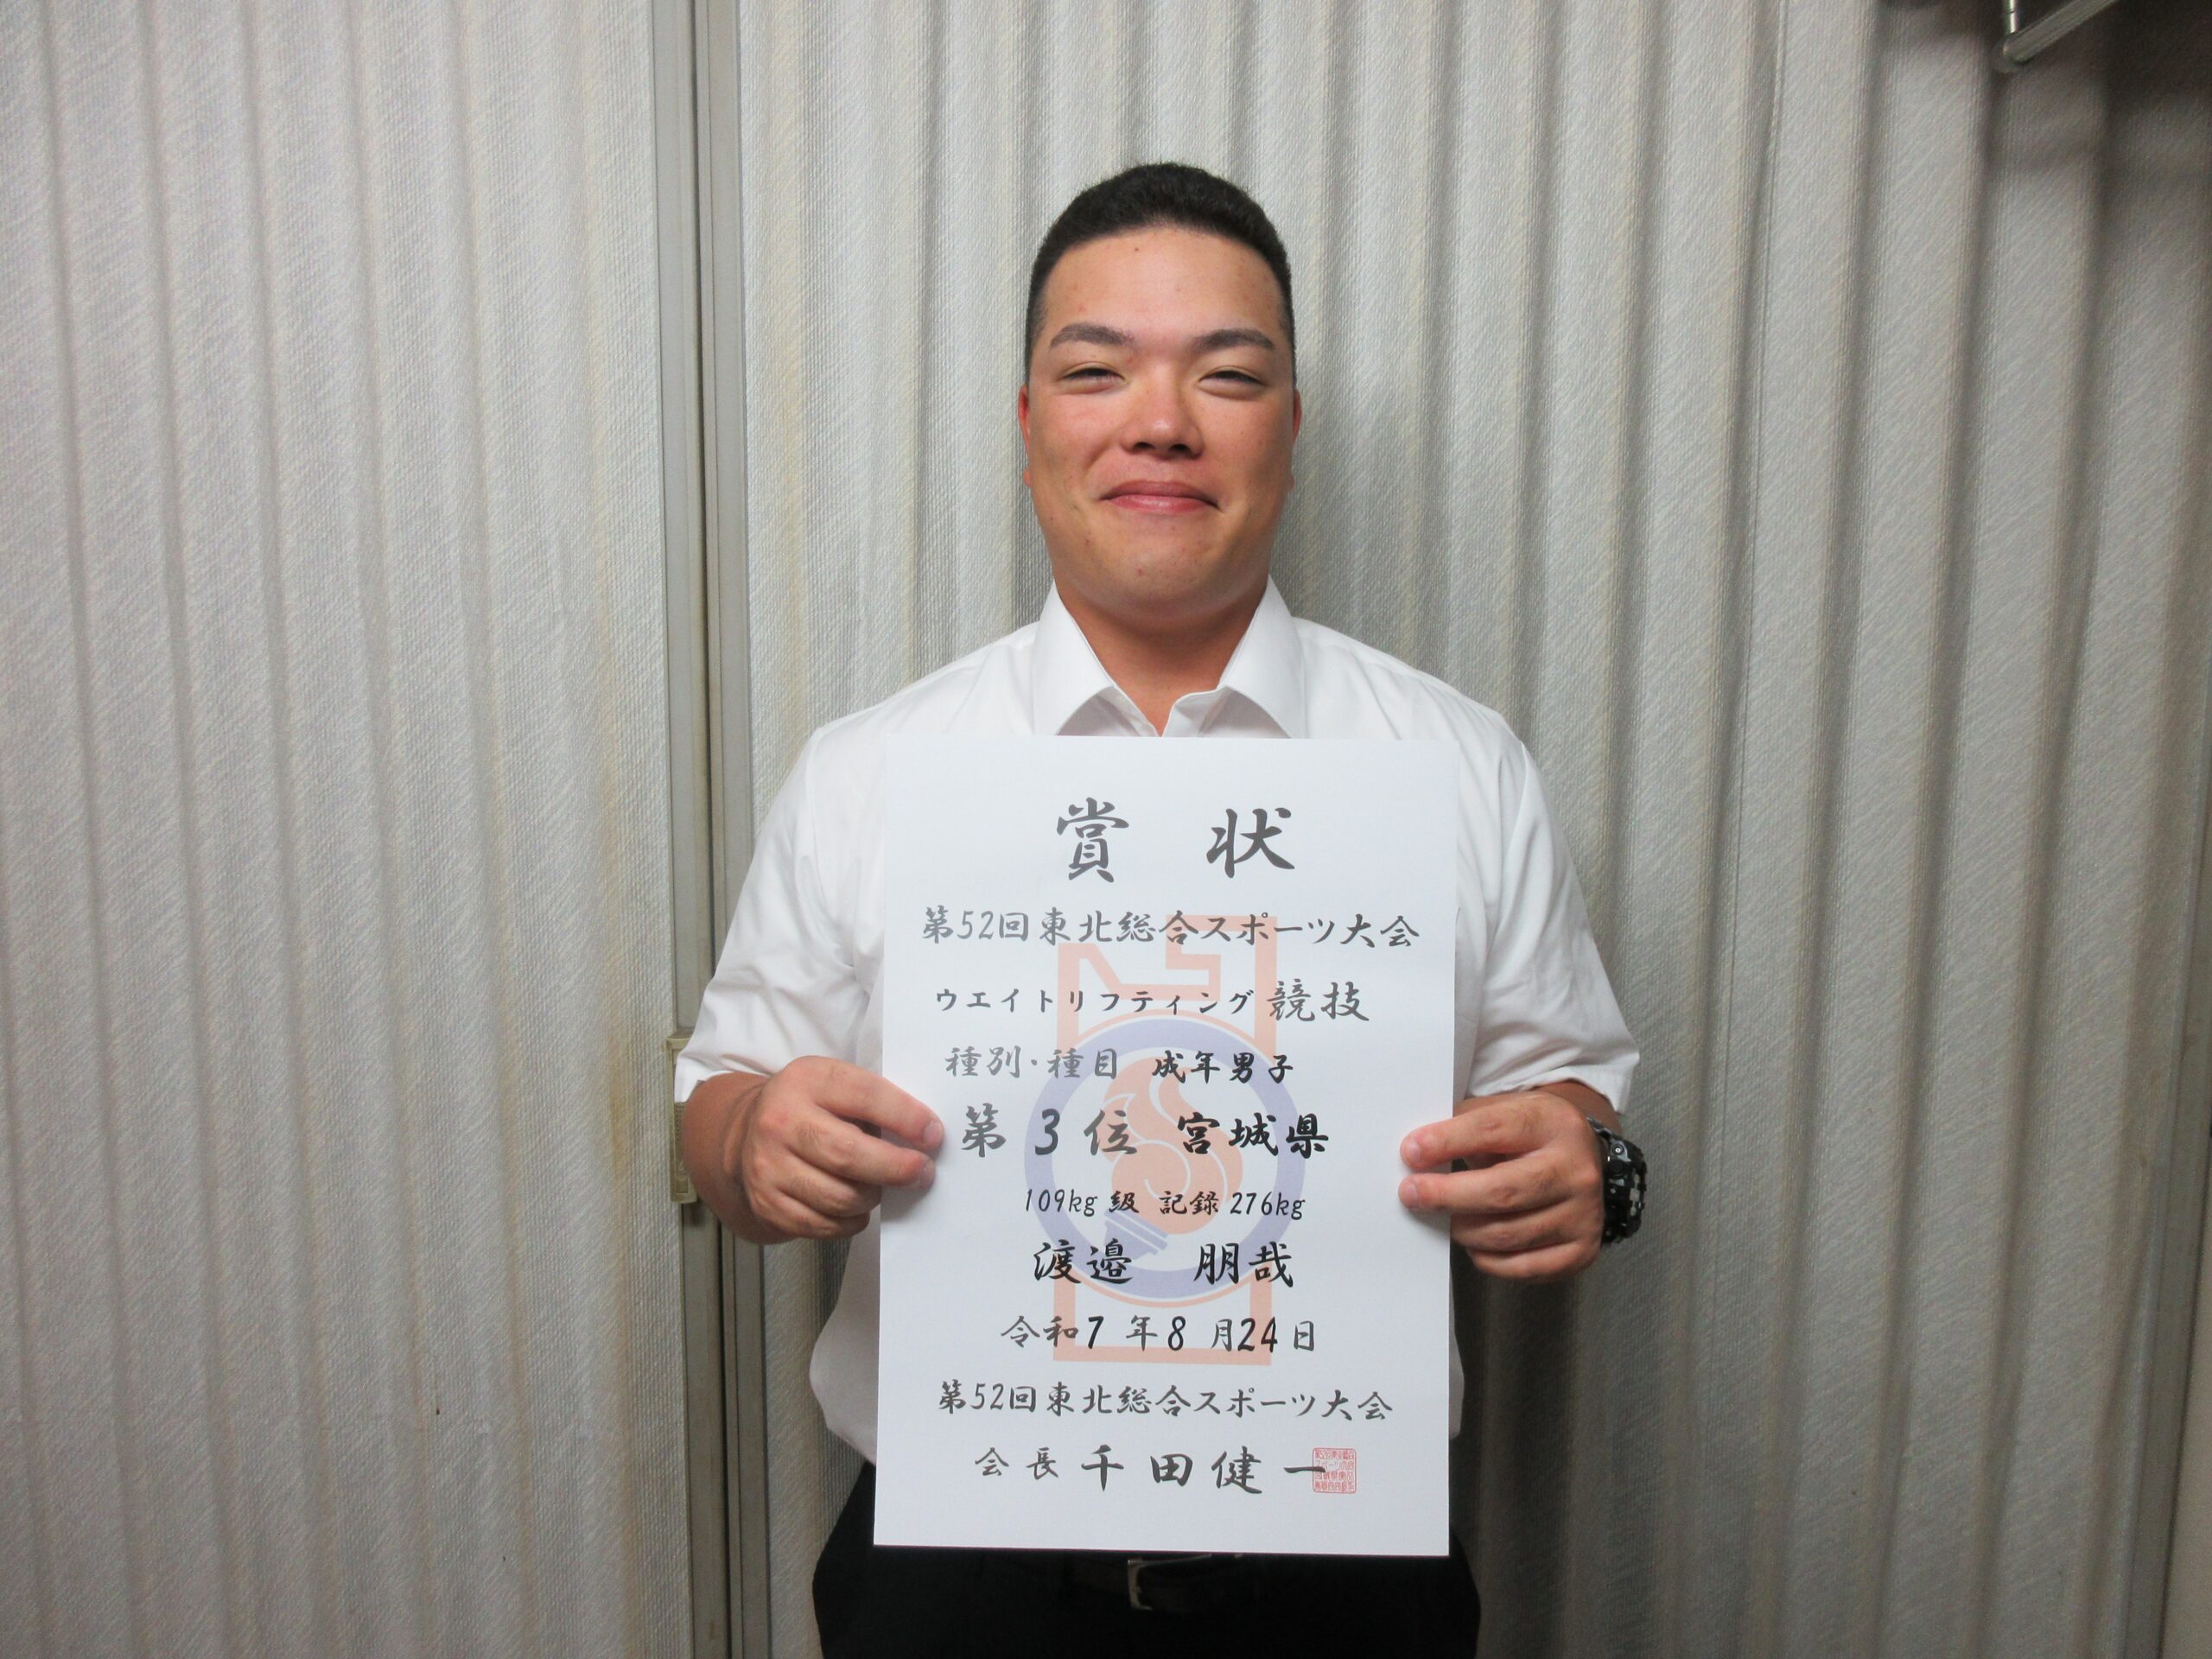 賞状
第52回東北総合スポーツ大会
ウエイトリフティング競技
種別・種目 成年男子
第3位 宮城県
109kg級 記録276kg
渡邉 朋哉
令和7年8月24日
第52回東北総合スポーツ大会
会長 千田健一